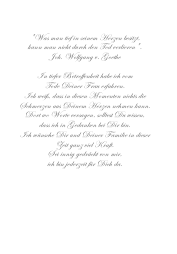 "Was man tief in seinem Herzen besitzt,
kann man nicht durch den Tod verlieren".
Joh. Wolfgang v. Goethe
In tiefer Betroffenheit habe ich vom
Tode Deiner Frau erfahren.
Ich weiß, dass in diesen Momenten nichts die
Schmerzen aus Deinem Herzen nehmen kann.
Dort wo Worte versagen, sollst Du wissen,
dass ich in Gedanken bei Dir bin.
Ich wünsche Dir und Deiner Familie in dieser
Zeit ganz viel Kraft.
Sei innig gedrückt von mir,
ich bin jederzeit für Dich da.